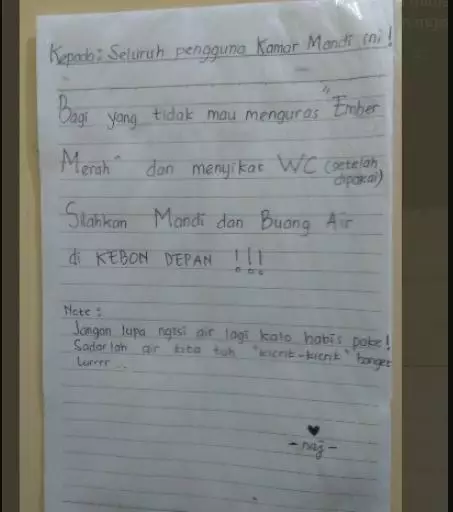 Kepada: Seluruh pengguna Kamar Mandi ini!
Bagi yang tidak mau menguras "Ember
Merah" dan menyikat WC (setelah
dipakai)
Silahkan Mandi dan Buang Air
di KEBON DEPAN !!!
Note :
Jangan lupa ngisi air lagi kalo habis pake!
Sadarlah air kita tuh "kicrik-kicrik" banget
Lurrrr...
- naj -